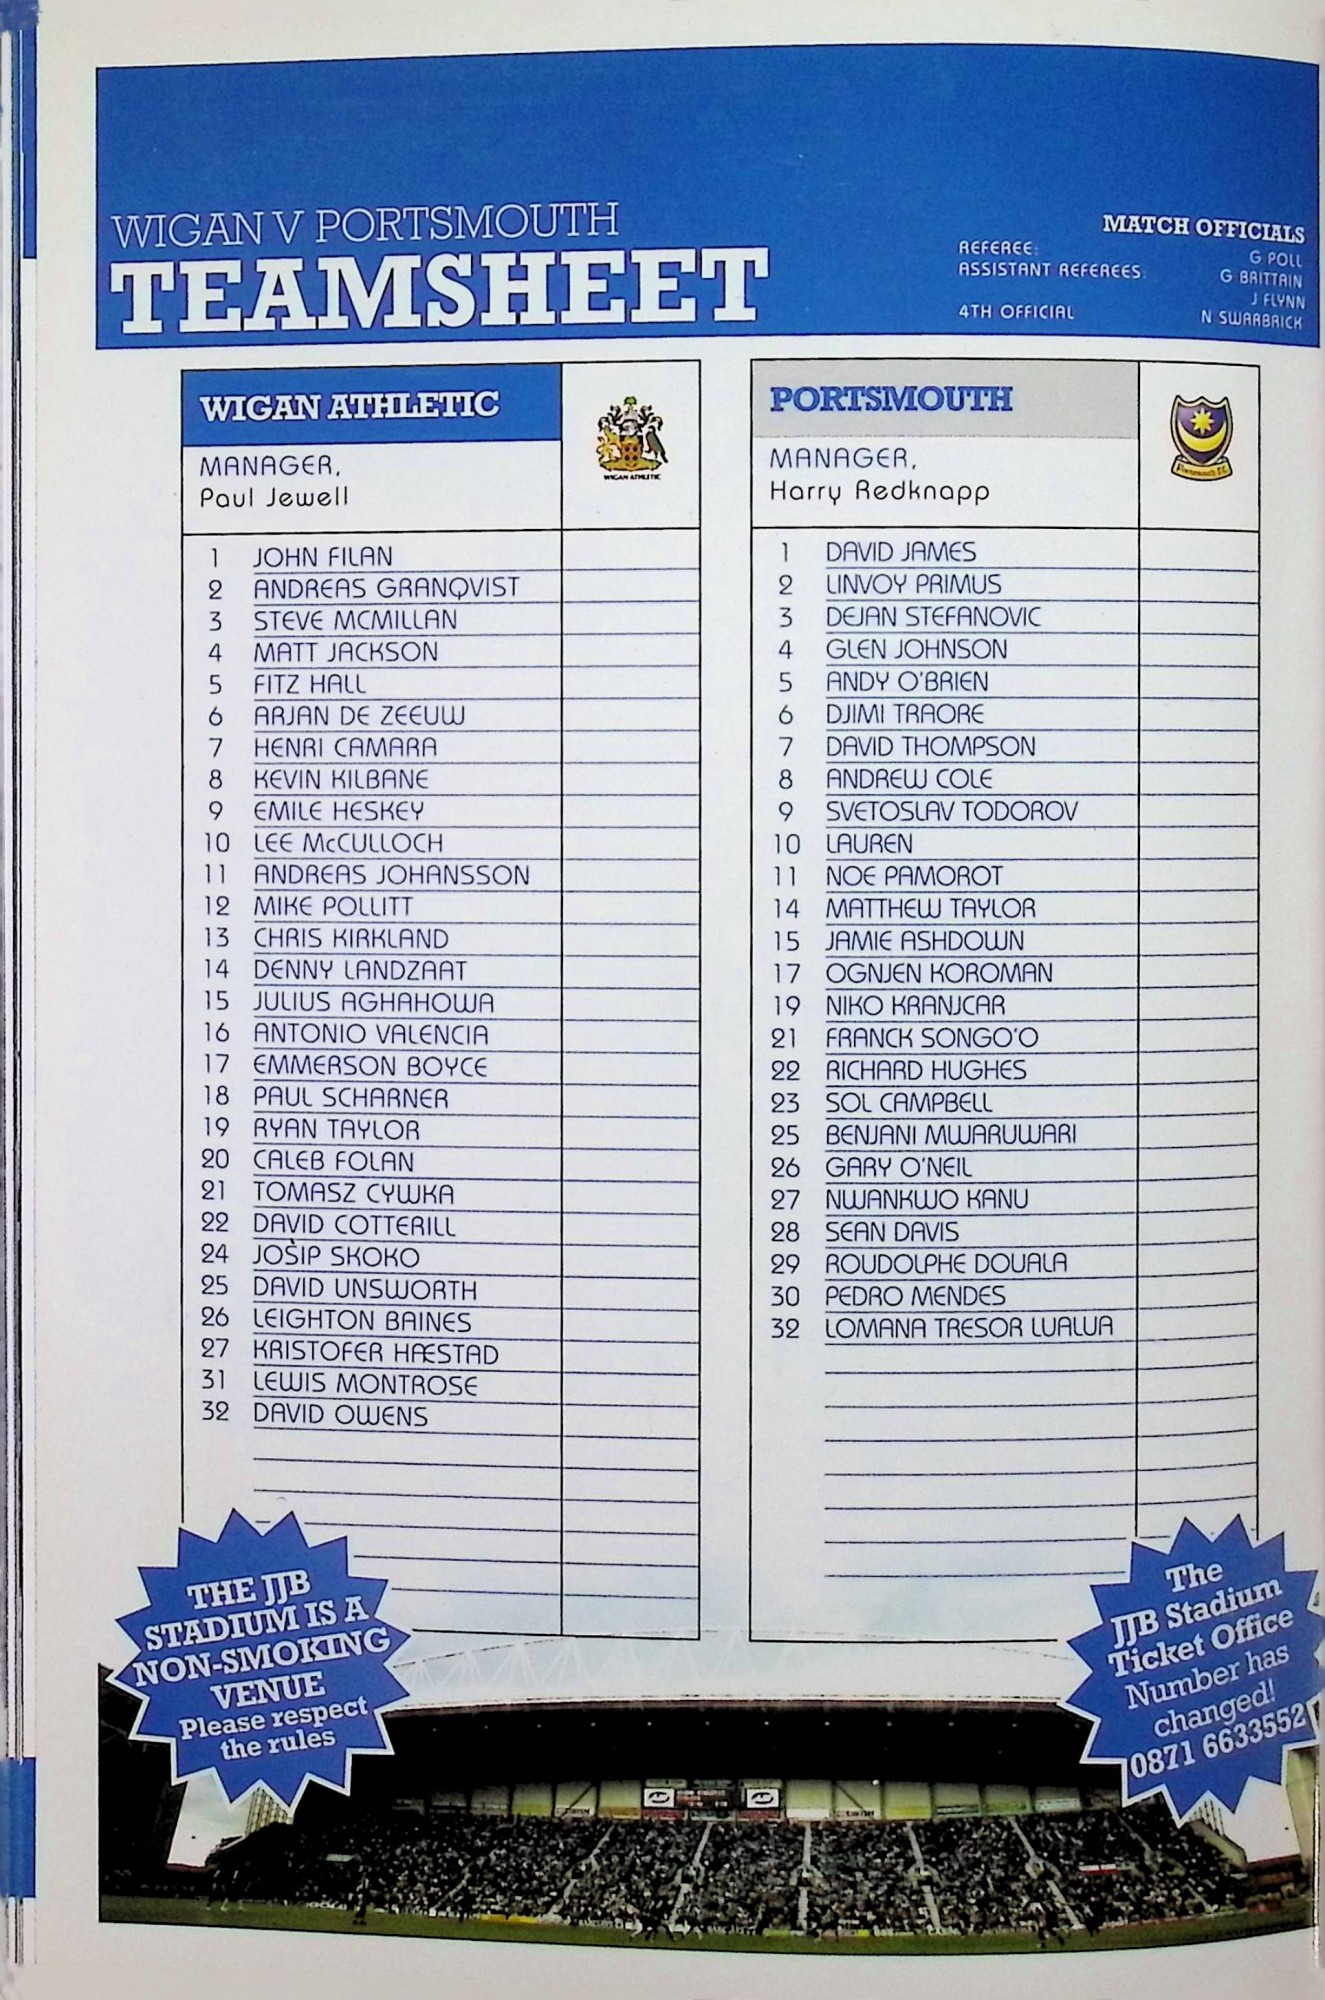 WIGAN V PORTSMOUTH
TEAMSHEET
MATCH OFFICIALS
REFEREE: G POLL
ASSISTANT REFEREES: G BRITTAIN
J FLYNN
4TH OFFICIAL N SWARBRICK
WIGAN ATHLETIC
WIGAN ATHLETIC
MANAGER,
Paul Jewell
1 JOHN FILAN
2 ANDREAS GRANQVIST
3 STEVE MCMILLAN
4 MATT JACKSON
5 FITZ HALL
6 ARJAN DE ZEEUW
7 HENRI CAMARA
8 KEVIN KILBANE
9 EMILE HESKEY
10 LEE McCULLOCH
11 ANDREAS JOHANSSON
12 MIKE POLLITT
13 CHRIS KIRKLAND
14 DENNY LANDZAAT
15 JULIUS AGHAHOWA
16 ANTONIO VALENCIA
17 EMMERSON BOYCE
18 PAUL SCHARNER
19 RYAN TAYLOR
20 CALEB FOLAN
21 TOMASZ CYWKA
22 DAVID COTTERILL
24 JOSIP SKOKO
25 DAVID UNSWORTH
26 LEIGHTON BAINES
27 KRISTOFER HÆSTAD
31 LEWIS MONTROSE
32 DAVID OWENS
PORTSMOUTH
Portsmouth F.C.
MANAGER,
Harry Redknapp
1 DAVID JAMES
2 LINVOY PRIMUS
3 DEJAN STEFANOVIC
4 GLEN JOHNSON
5 ANDY O'BRIEN
6 DJIMI TRAORE
7 DAVID THOMPSON
8 ANDREW COLE
9 SVETOSLAV TODOROV
10 LAUREN
11 NOE PAMOROT
14 MATTHEW TAYLOR
15 JAMIE ASHDOWN
17 OGNJEN KOROMAN
19 NIKO KRANJCAR
21 FRANCK SONGO'O
22 RICHARD HUGHES
23 SOL CAMPBELL
25 BENJANI MWARUWARI
26 GARY O'NEIL
27 NWANKWO KANU
28 SEAN DAVIS
29 ROUDOLPHE DOUALA
30 PEDRO MENDES
32 LOMANA TRESOR LUALUA
THE JJB
STADIUM IS A
NON-SMOKING
VENUE
Please respect
the rules
The
JJB Stadium
Ticket Office
Number has
changed!
0871 6633552